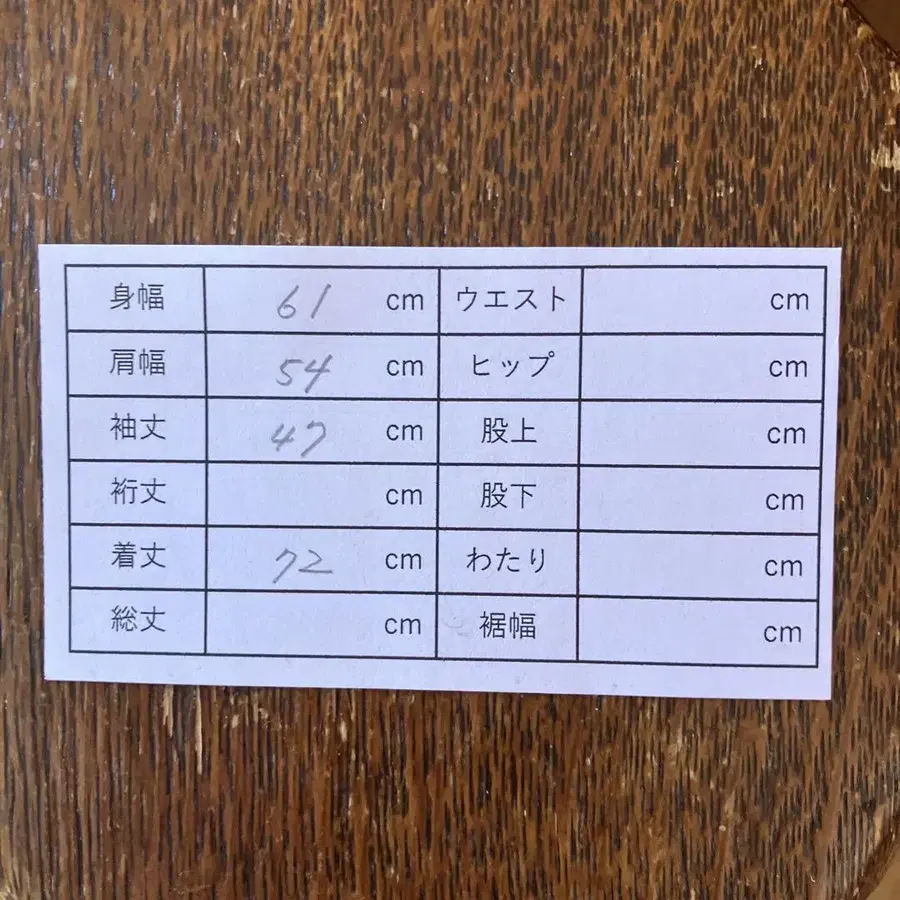 身幅 61 cm ウエスト cm
肩幅 54 cm ヒップ cm
袖丈 47 cm 股上 cm
裄丈 cm 股下 cm
着丈 72 cm わたり cm
総丈 cm 裾幅 cm